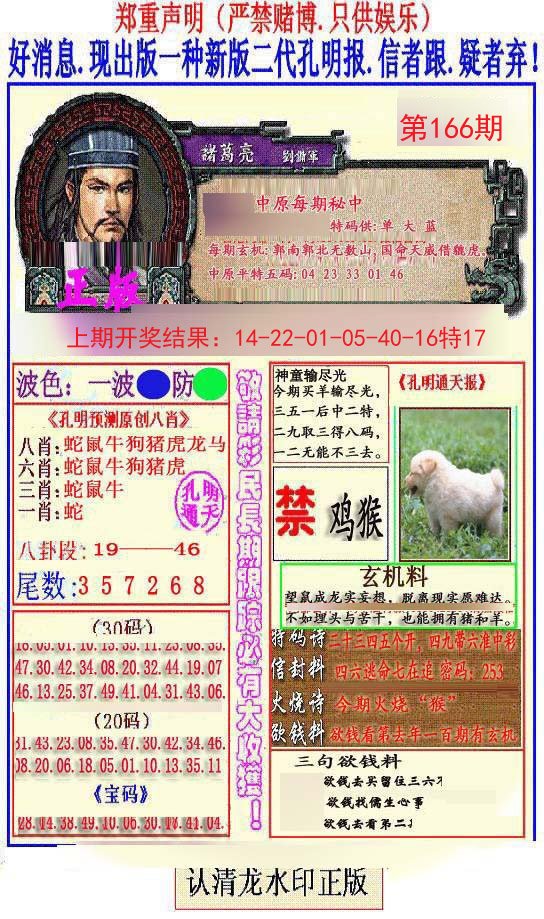 郑重声明（严禁赌博.只供娱乐）
好消息.现出版一种新版二代孔明报.信者跟.疑者弃!
第166期
諸葛亮 劉備軍
中原每期秘中
特码供: 单 大 蓝
每期玄机: 郭南郭北无數山, 国命天威借魏虎.
中原平特五码: 04 23 33 01 46
正版
上期开奖结果：14-22-01-05-40-16特17
波色：一波 防
《孔明预测原创八肖》
八肖: 蛇鼠牛狗猪虎龙马
六肖: 蛇鼠牛狗猪虎
三肖: 蛇鼠牛
一肖: 蛇
孔明
通天
八卦段: 19——46
尾数: 3 5 7 2 6 8
敬請彩民長期跟踪必有大收獲！
神童输尽光
今期买羊输尽光，
三五一后中二特，
二九取三得八码，
一二无能不三去。
《孔明通天报》
禁 鸡猴
玄机料
望鼠成龙实妄想，脱离现实愿难达。
不如埋头与苦干，也能拥有猪和羊。
(30码)
18.05.01.10.13.35.11.23.08.35.
47.30.42.34.08.20.32.44.19.07
46.13.25.37.49.41.04.31.43.06.
(20码)
31.43.23.08.35.47.30.42.34.46.
08.20.06.18.05.01.10.13.35.11
《宝码》
28.14.38.49.10.06.30.18.41.04.
特码诗 三十三四五个开, 四九带六准中彩
信封料 四六逃命七在追 密码: 253
火烧诗 今期火烧“猴”
欲钱料 欲钱看第去年一百期有玄机
三句欲钱料
欲钱去买留住三六不
欲钱找儒生心事
欲钱去看第二
认清龙水印正版